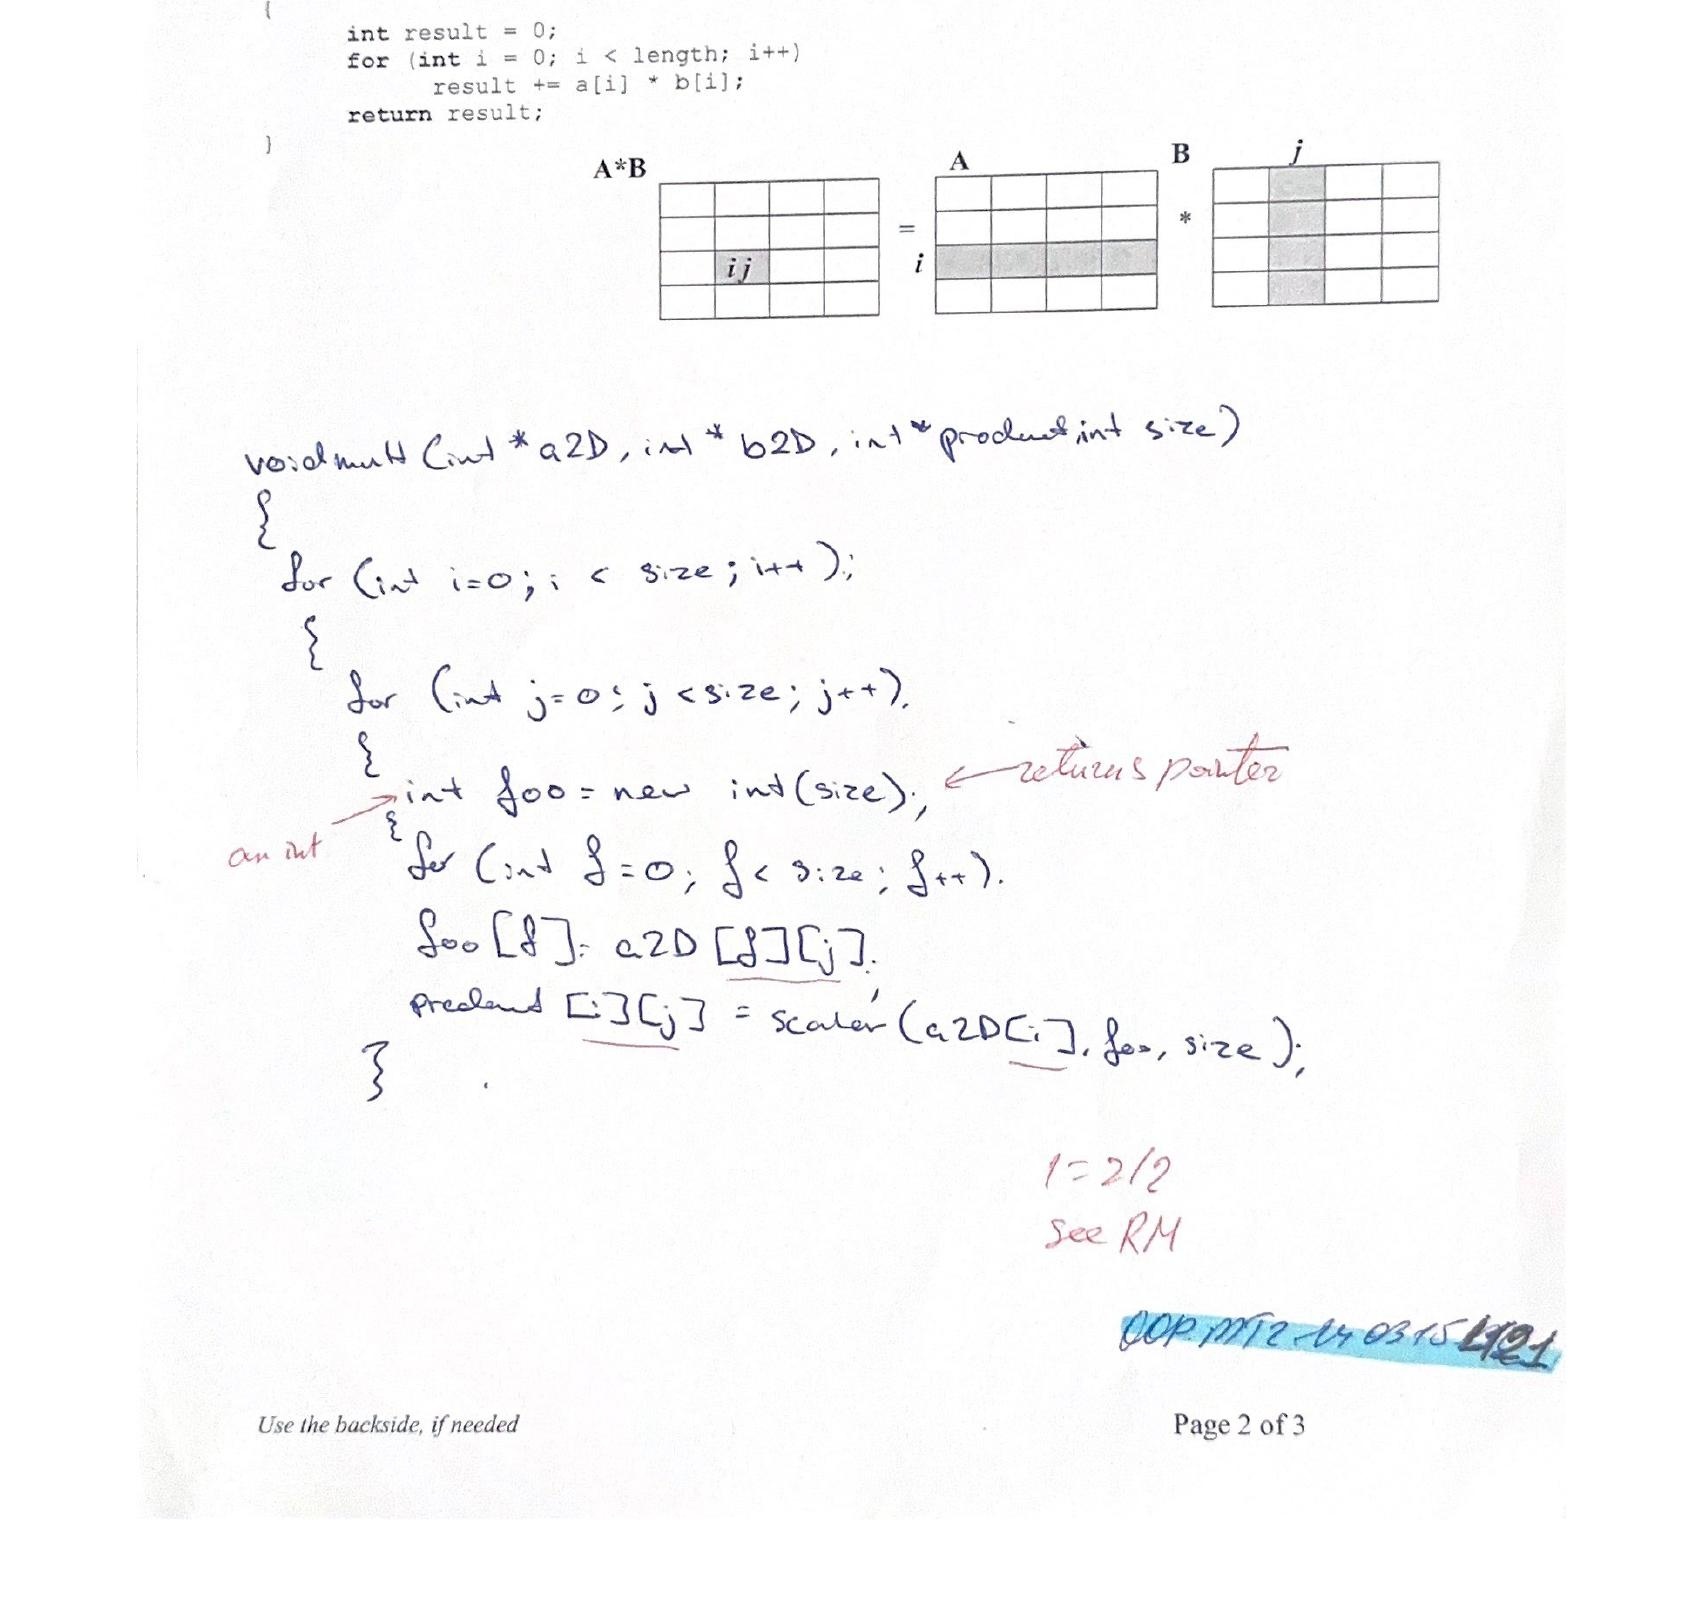 {
int result = 0;
for (int i = 0; i < length; i++)
result += a[i] * b[i];
return result;
}
A*B
A
B
j
=
*
ij
i
void mult (int * a2D, int * b2D, int * product, int size)
{
for (int i=0; i < size; i++);
{
for (int j=0; j <size; j++).
{
int foo = new int(size);
returns pointer
an int
{
for (int f=0; f< size; f++).
foo [f]= a2D [f][j];
product [i][j] = scalar (a2D[i], foo, size);
}
1=2/2
see RM
OOP MT2 14 03 15
Use the backside, if needed
Page 2 of 3